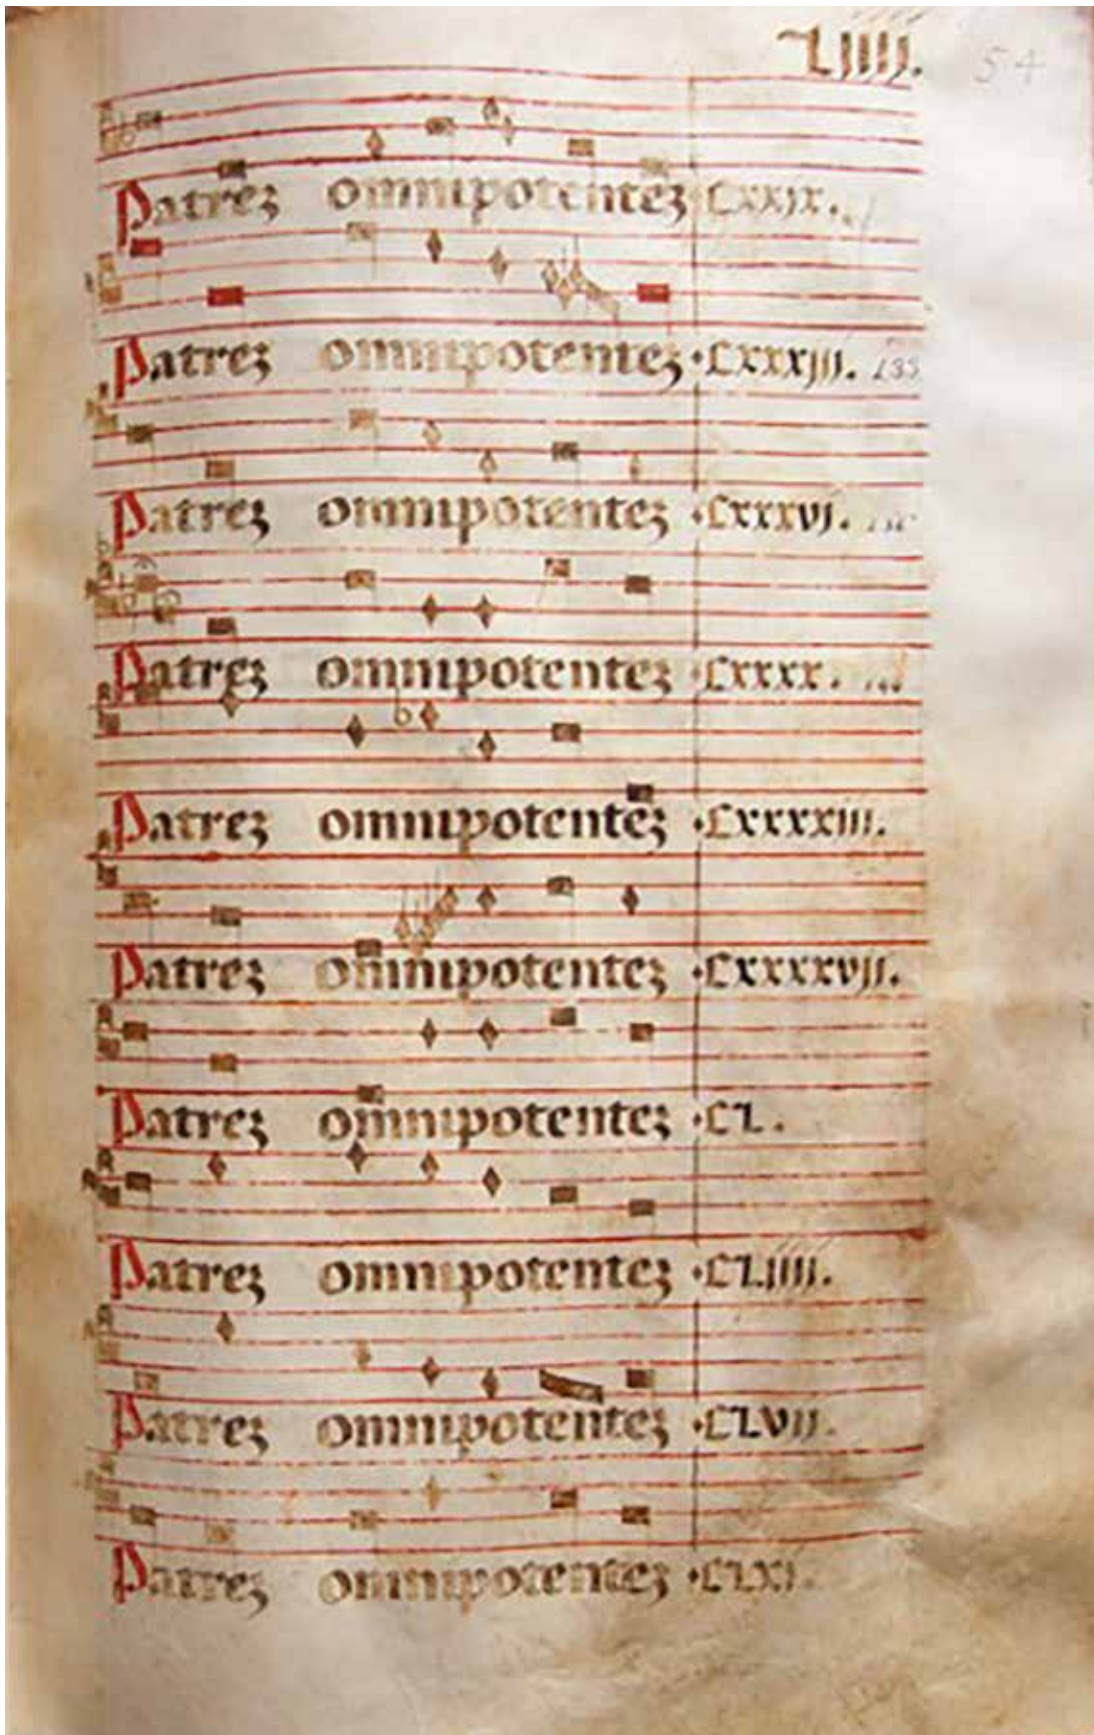 Liiij. 54
Patrez omnipotentez Cxxix.
Patrez omnipotentez Cxxxiij. 133
Patrez omnipotentez Cxxxvj.
Patrez omnipotentez Cxxxx.
Patrez omnipotentez Cxxxxiij.
Patrez omnipotentez Cxxxxvij.
Patrez omnipotentez CL.
Patrez omnipotentez CLiiij.
Patrez omnipotentez CLvij.
Patrez omnipotentez CLxj.